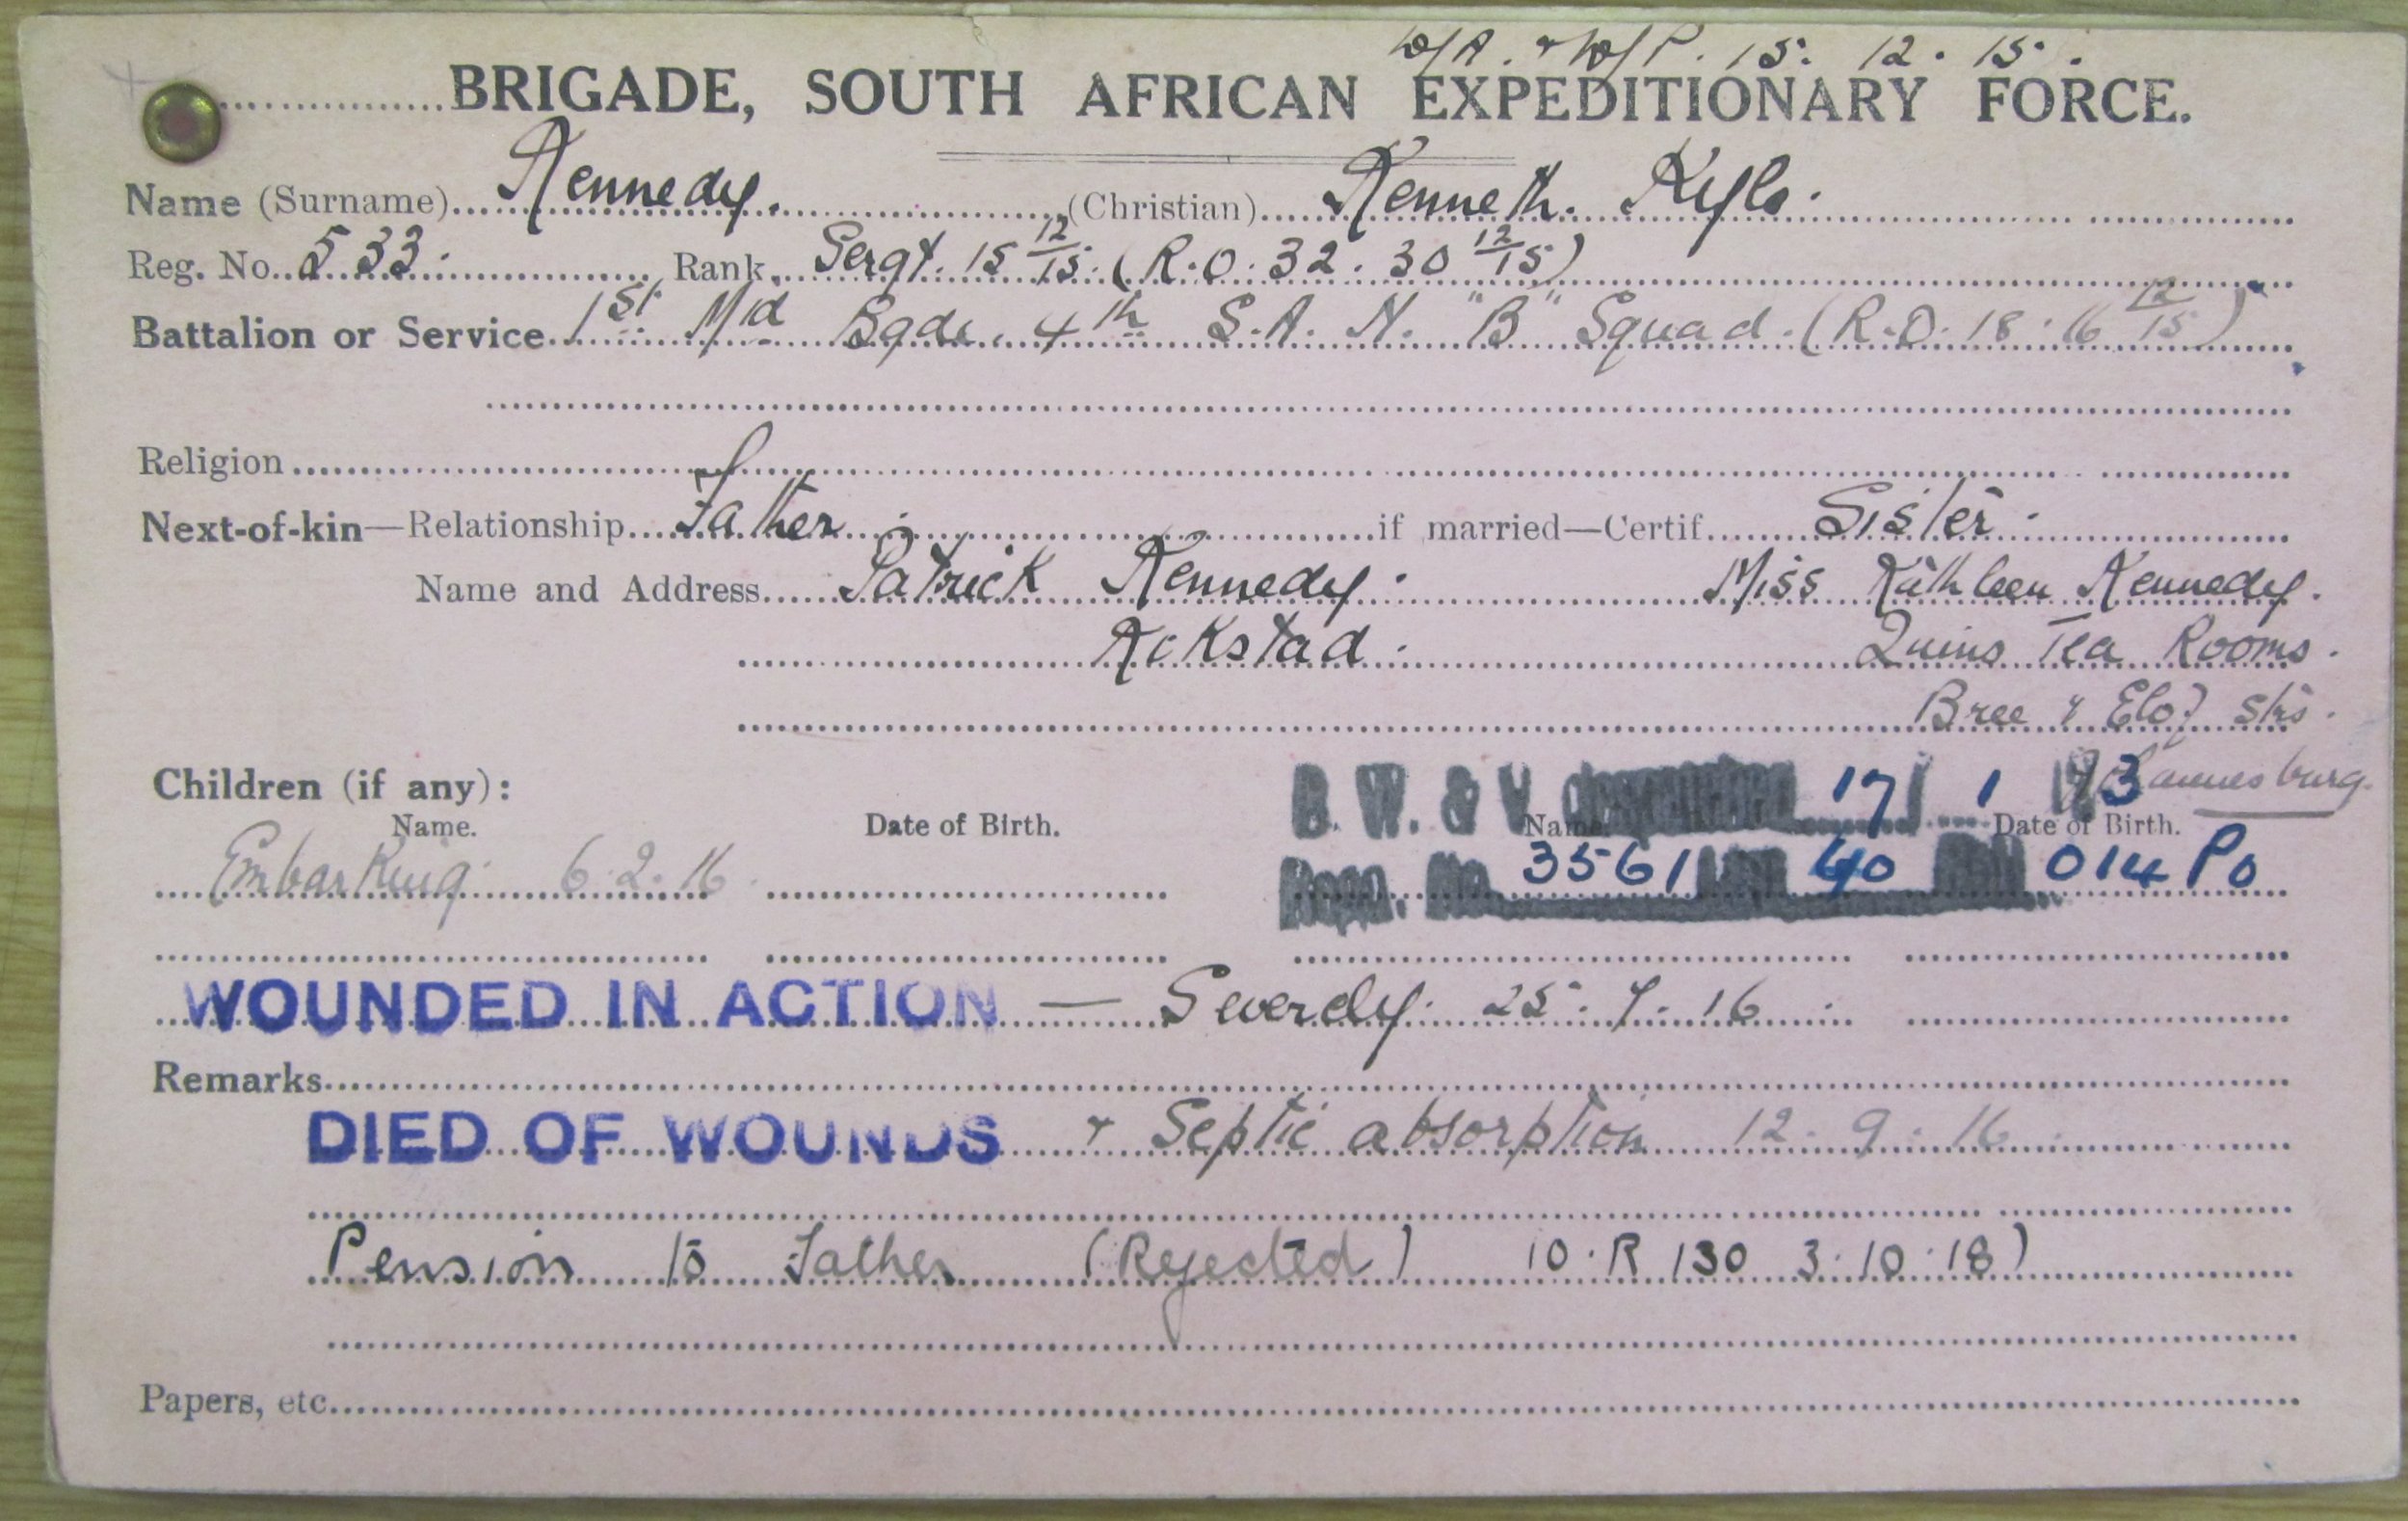 W/A. & W/P. 15. 12. 15.
BRIGADE, SOUTH AFRICAN EXPEDITIONARY FORCE.
Name (Surname) Kennedy. (Christian) Kenneth. Kyle.
Reg. No. 533. Rank Sergt. 15 12/15. (R.O. 32. 30 12/15)
Battalion or Service 1st Md Bgde. 4th S.A.H. "B" Squad. (R.O. 18. 16 12/15)
Religion
Next-of-kin—Relationship Father. if married—Certif. Sister.
Name and Address Patrick Kennedy. Miss Kathleen Kennedy.
Kokstad. Quins Tea Rooms.
Bree & Elof Sts.
Johannesburg.
Children (if any): B. W. & V. 17 1
Name. Date of Birth. Name. Date of Birth.
Embarking. 6.2.16. No. 3561 40 014 Po
WOUNDED IN ACTION — Severely. 25. 7. 16.
Remarks
DIED OF WOUNDS & Septic absorption 12. 9. 16
Pension to Father (Rejected) 10. R 130 3.10.18)
Papers, etc.